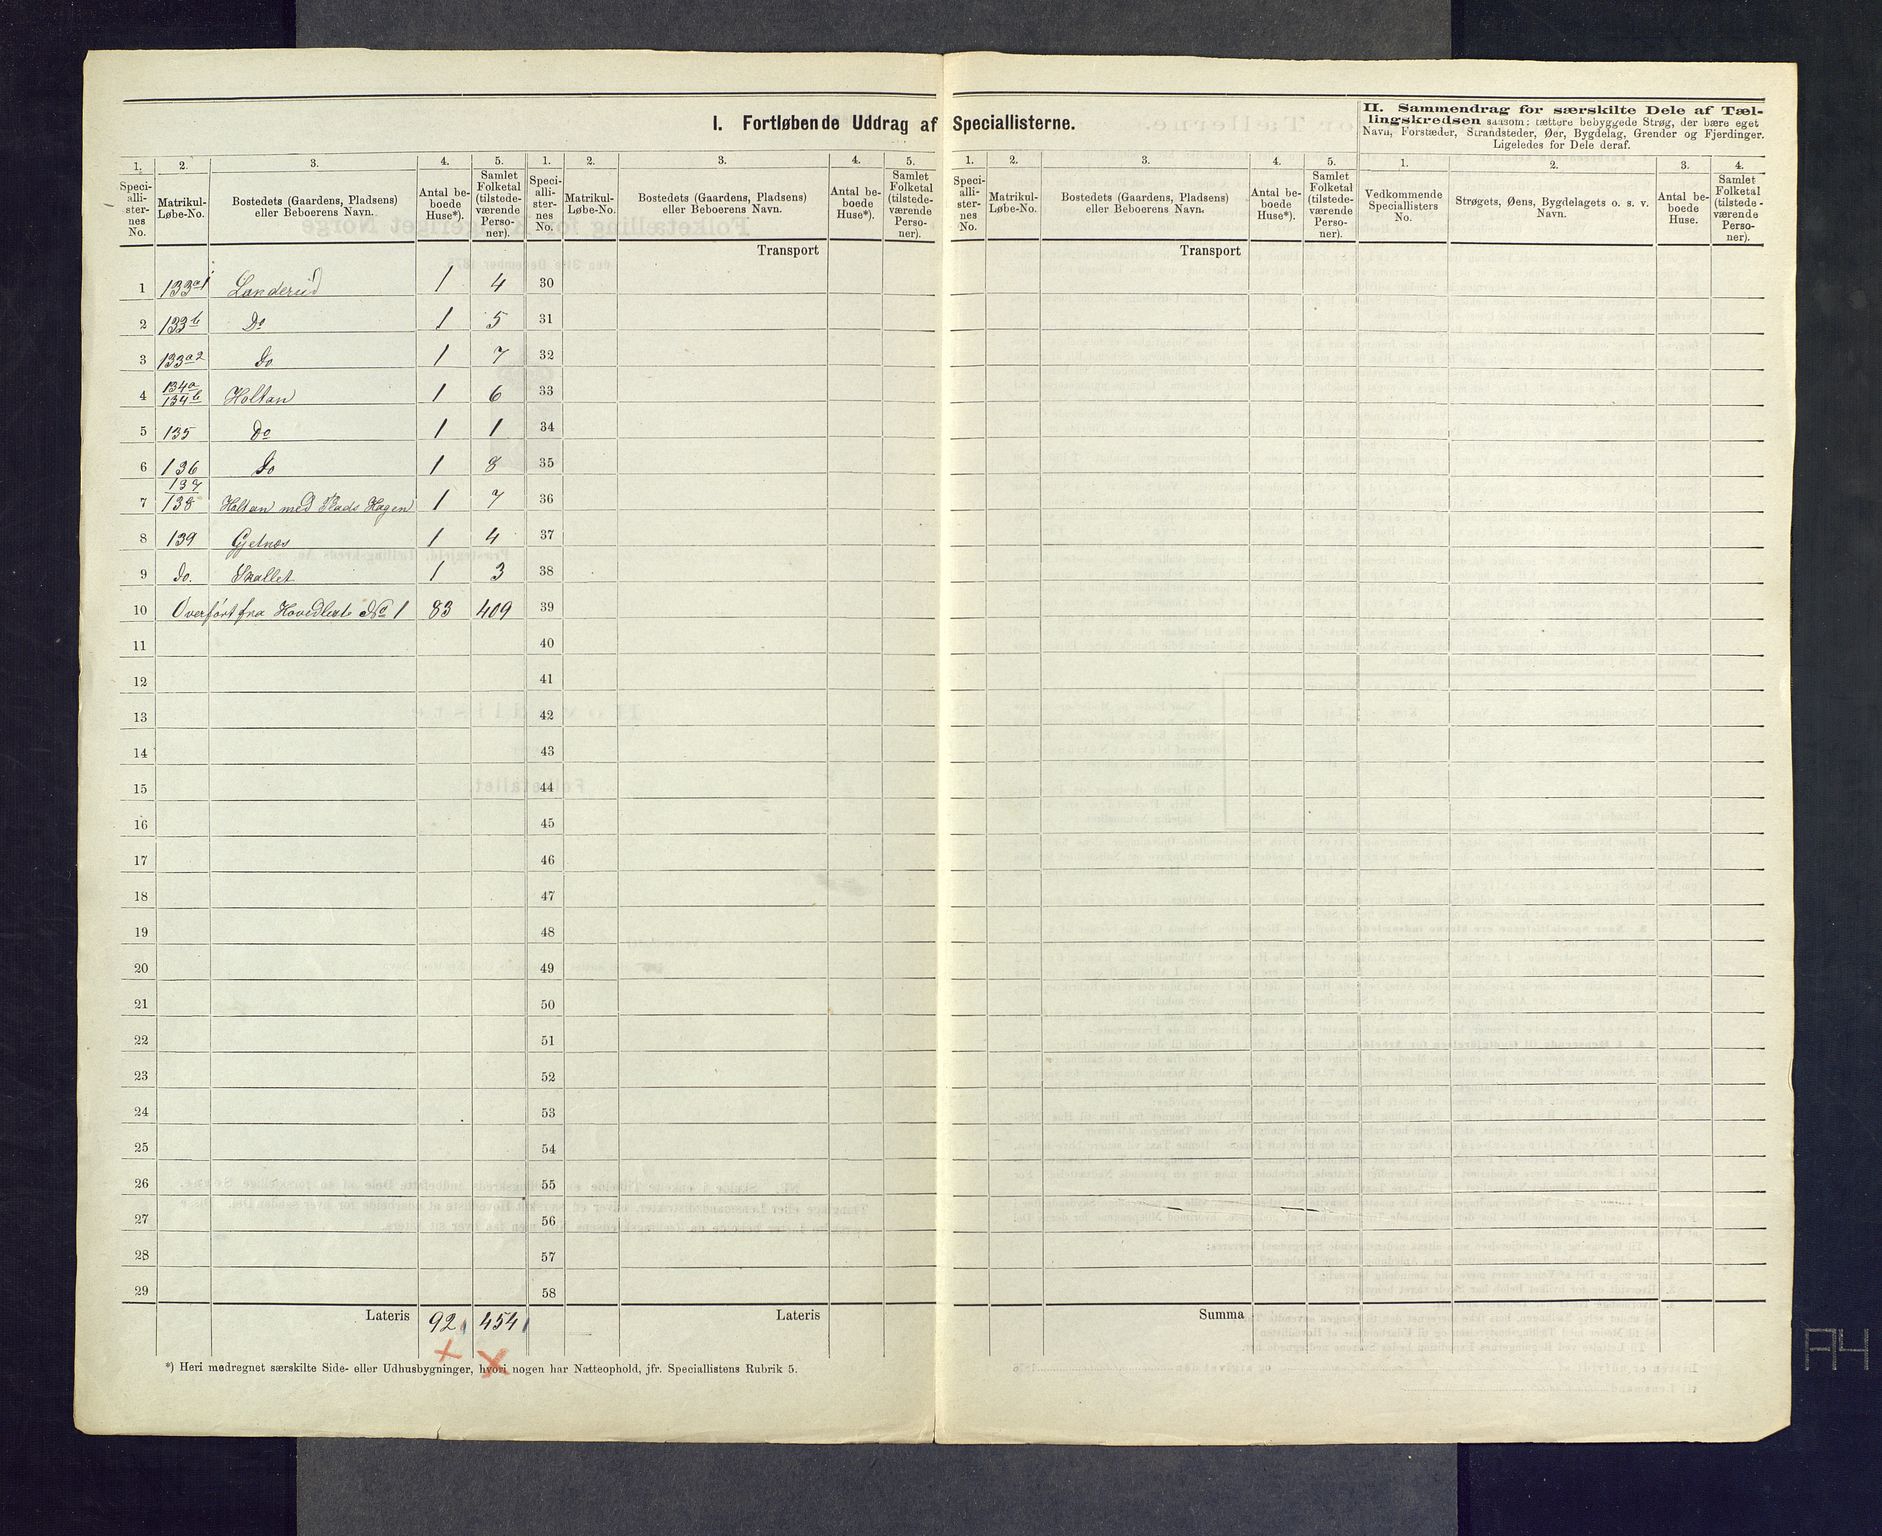 I. Fortløbende Uddrag af Speciallisterne.
II. Sammendrag for særskilte Dele af Tæl-
lingskredsen saasom: tættere bebyggede Strøg, der bære eget
Navn, Forstæder, Strandsteder, Øer, Bygdelag, Grender og Fjerdinger.
Ligeledes for Dele deraf.
1. 2. 3. 4. 5. 1. 2. 3. 4. 5. 1. 2. 3. 4. 5. 1. 2. 3. 4.
Speci-alli-ster-nes No. Matrikul-Løbe-No. Bostedets (Gaardens, Pladsens) eller Beboerens Navn. Antal be-boede Huse*). Samlet Folketal (tilstede-værende Perso-ner).
Speci-alli-ster-nes No. Matrikul-Løbe-No. Bostedets (Gaardens, Pladsens) eller Beboerens Navn. Antal be-boede Huse*). Samlet Folketal (tilstede-værende Perso-ner).
Speci-alli-ster-nes No. Matrikul-Løbe-No. Bostedets (Gaardens, Pladsens) eller Beboerens Navn. Antal be-boede Huse*). Samlet Folketal (tilstede-værende Perso-ner).
Vedkommende Speciallisters No. Strøgets, Øens, Bygdelagets o. s. v. Navn. Antal be-boede Huse. Samlet Folketal (tilstede-værende Perso-ner).
Transport Transport
1 133a1 Landerud 1 4 30
2 133b Do 1 5 31
3 133a2 Do 1 7 32
4 134a/134b Holtan 1 6 33
5 135 Do 1 1 34
6 136 Do 1 8 35
7 137/138 Holtan med Plads Hagen 1 7 36
8 139 Gjelnæs 1 4 37
9 do. Skallet 1 3 38
10 Overført fra Hovedliste No 1 83 409 39
11 40
12 41
13 42
14 43
15 44
16 45
17 46
18 47
19 48
20 49
21 50
22 51
23 52
24 53
25 54
26 55
27 56
28 57
29 58
Lateris 92 454 Lateris Summa
*) Heri medregnet særskilte Side- eller Udhusbygninger, hvori nogen har Natteophold, jfr. Speciallistens Rubrik 5.
A4